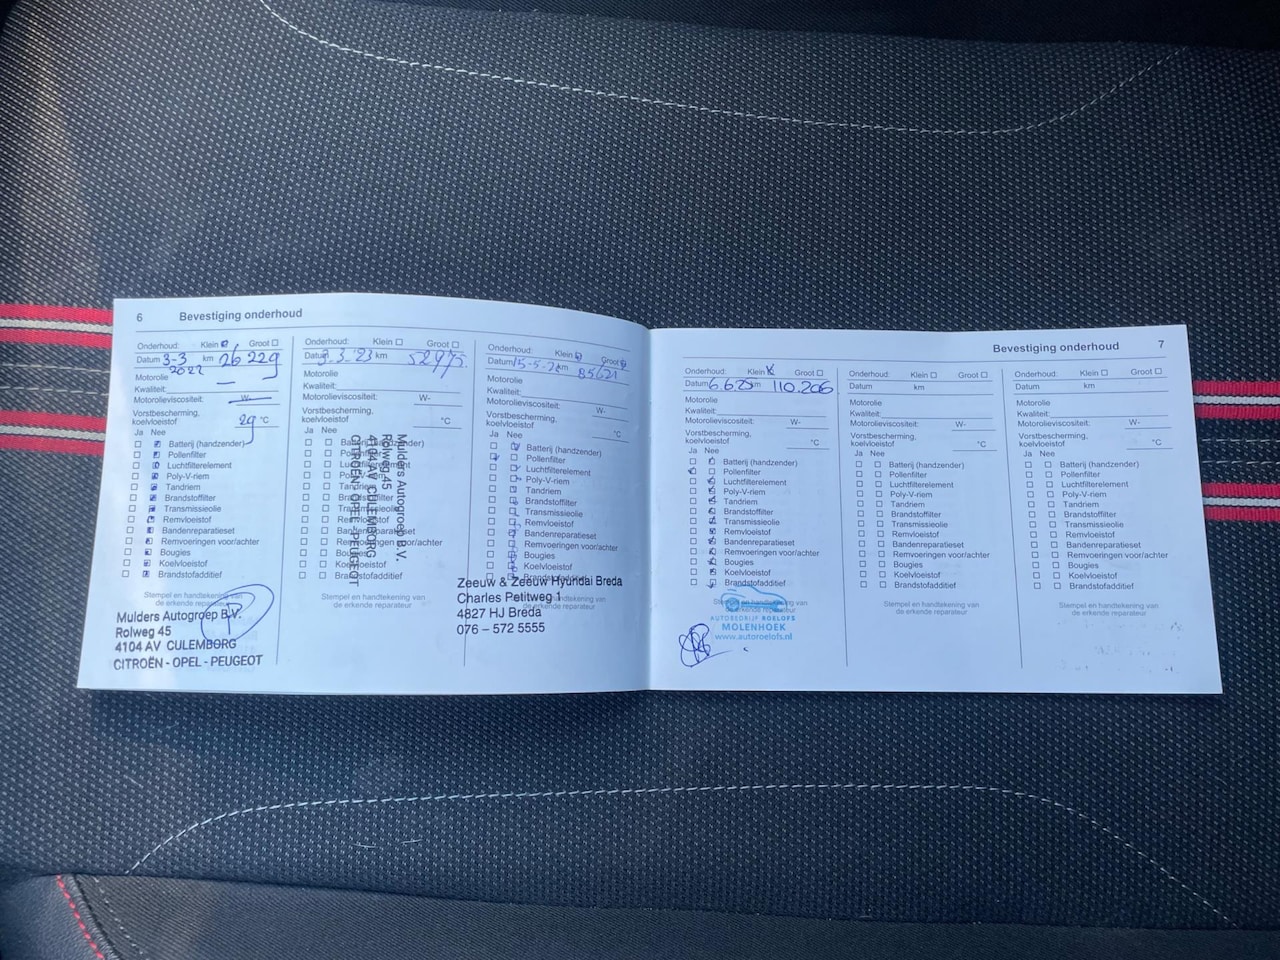 6 Bevestiging onderhoud
Onderhoud: Klein Groot
Datum 3-3 2022 km 26 229
Motorolie
Kwaliteit:
Motorolieviscositeit: W-
Vorstbescherming,
koelvloeistof 29 °C
Ja Nee
Batterij (handzender)
Pollenfilter
Luchtfilterelement
Poly-V-riem
Tandriem
Brandstoffilter
Transmissieolie
Remvloeistof
Bandenreparatieset
Remvoeringen voor/achter
Bougies
Koelvloeistof
Brandstofadditief
Stempel en handtekening van
de erkende reparateur
Mulders Autogroep B.V.
Rolweg 45
4104 AV CULEMBORG
CITROËN - OPEL - PEUGEOT
Onderhoud: Klein Groot
Datum 3.3.'23 km 52975
Motorolie
Kwaliteit:
Motorolieviscositeit: W-
Vorstbescherming,
koelvloeistof °C
Ja Nee
Batterij (handzender)
Pollenfilter
Luchtfilterelement
Poly-V-riem
Tandriem
Brandstoffilter
Transmissieolie
Remvloeistof
Bandenreparatieset
Remvoeringen voor/achter
Bougies
Koelvloeistof
Brandstofadditief
Stempel en handtekening van
de erkende reparateur
Mulders Autogroep B.V.
Rolweg 45
4104 AV CULEMBORG
CITROËN - OPEL - PEUGEOT
Onderhoud: Klein Groot
Datum 15-5- km 85621
Motorolie
Kwaliteit:
Motorolieviscositeit: W-
Vorstbescherming,
koelvloeistof °C
Ja Nee
Batterij (handzender)
Pollenfilter
Luchtfilterelement
Poly-V-riem
Tandriem
Brandstoffilter
Transmissieolie
Remvloeistof
Bandenreparatieset
Remvoeringen voor/achter
Bougies
Koelvloeistof
Brandstofadditief
Stempel en handtekening van
de erkende reparateur
Zeeuw & Zeeuw Hyundai Breda
Charles Petitweg 1
4827 HJ Breda
076 – 572 5555
Bevestiging onderhoud 7
Onderhoud: Klein Groot
Datum 6.6.25 km 110.206
Motorolie
Kwaliteit:
Motorolieviscositeit: W-
Vorstbescherming,
koelvloeistof °C
Ja Nee
Batterij (handzender)
Pollenfilter
Luchtfilterelement
Poly-V-riem
Tandriem
Brandstoffilter
Transmissieolie
Remvloeistof
Bandenreparatieset
Remvoeringen voor/achter
Bougies
Koelvloeistof
Brandstofadditief
Stempel en handtekening van
de erkende reparateur
AUTOBEDRIJF ROELOFS
MOLENHOEK
www.autoroelofs.nl
Onderhoud: Klein Groot
Datum km
Motorolie
Kwaliteit:
Motorolieviscositeit: W-
Vorstbescherming,
koelvloeistof °C
Ja Nee
Batterij (handzender)
Pollenfilter
Luchtfilterelement
Poly-V-riem
Tandriem
Brandstoffilter
Transmissieolie
Remvloeistof
Bandenreparatieset
Remvoeringen voor/achter
Bougies
Koelvloeistof
Brandstofadditief
Stempel en handtekening van
de erkende reparateur
Onderhoud: Klein Groot
Datum km
Motorolie
Kwaliteit:
Motorolieviscositeit: W-
Vorstbescherming,
koelvloeistof °C
Ja Nee
Batterij (handzender)
Pollenfilter
Luchtfilterelement
Poly-V-riem
Tandriem
Brandstoffilter
Transmissieolie
Remvloeistof
Bandenreparatieset
Remvoeringen voor/achter
Bougies
Koelvloeistof
Brandstofadditief
Stempel en handtekening van
de erkende reparateur